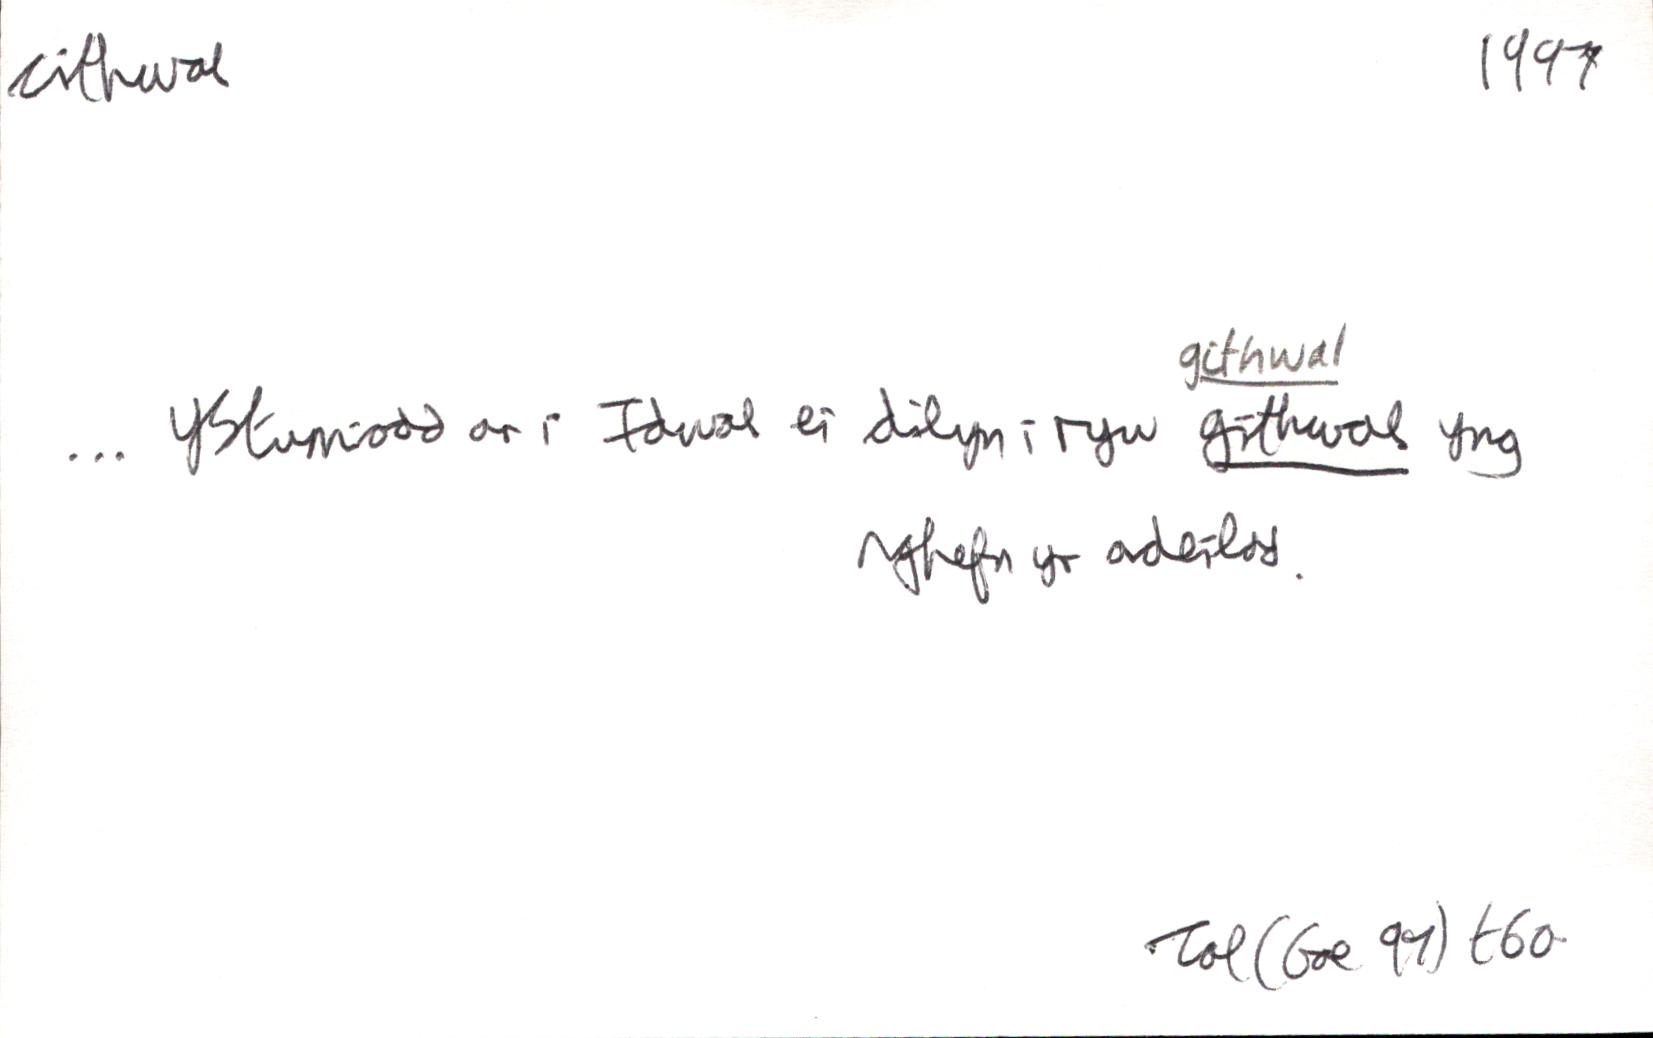 cithwal 1997
githwal
... ystumiodd ar i Idwal ei dilyn i ryw githwal yng
nghefn yr adeilad.
Tal (Gae 97) t60